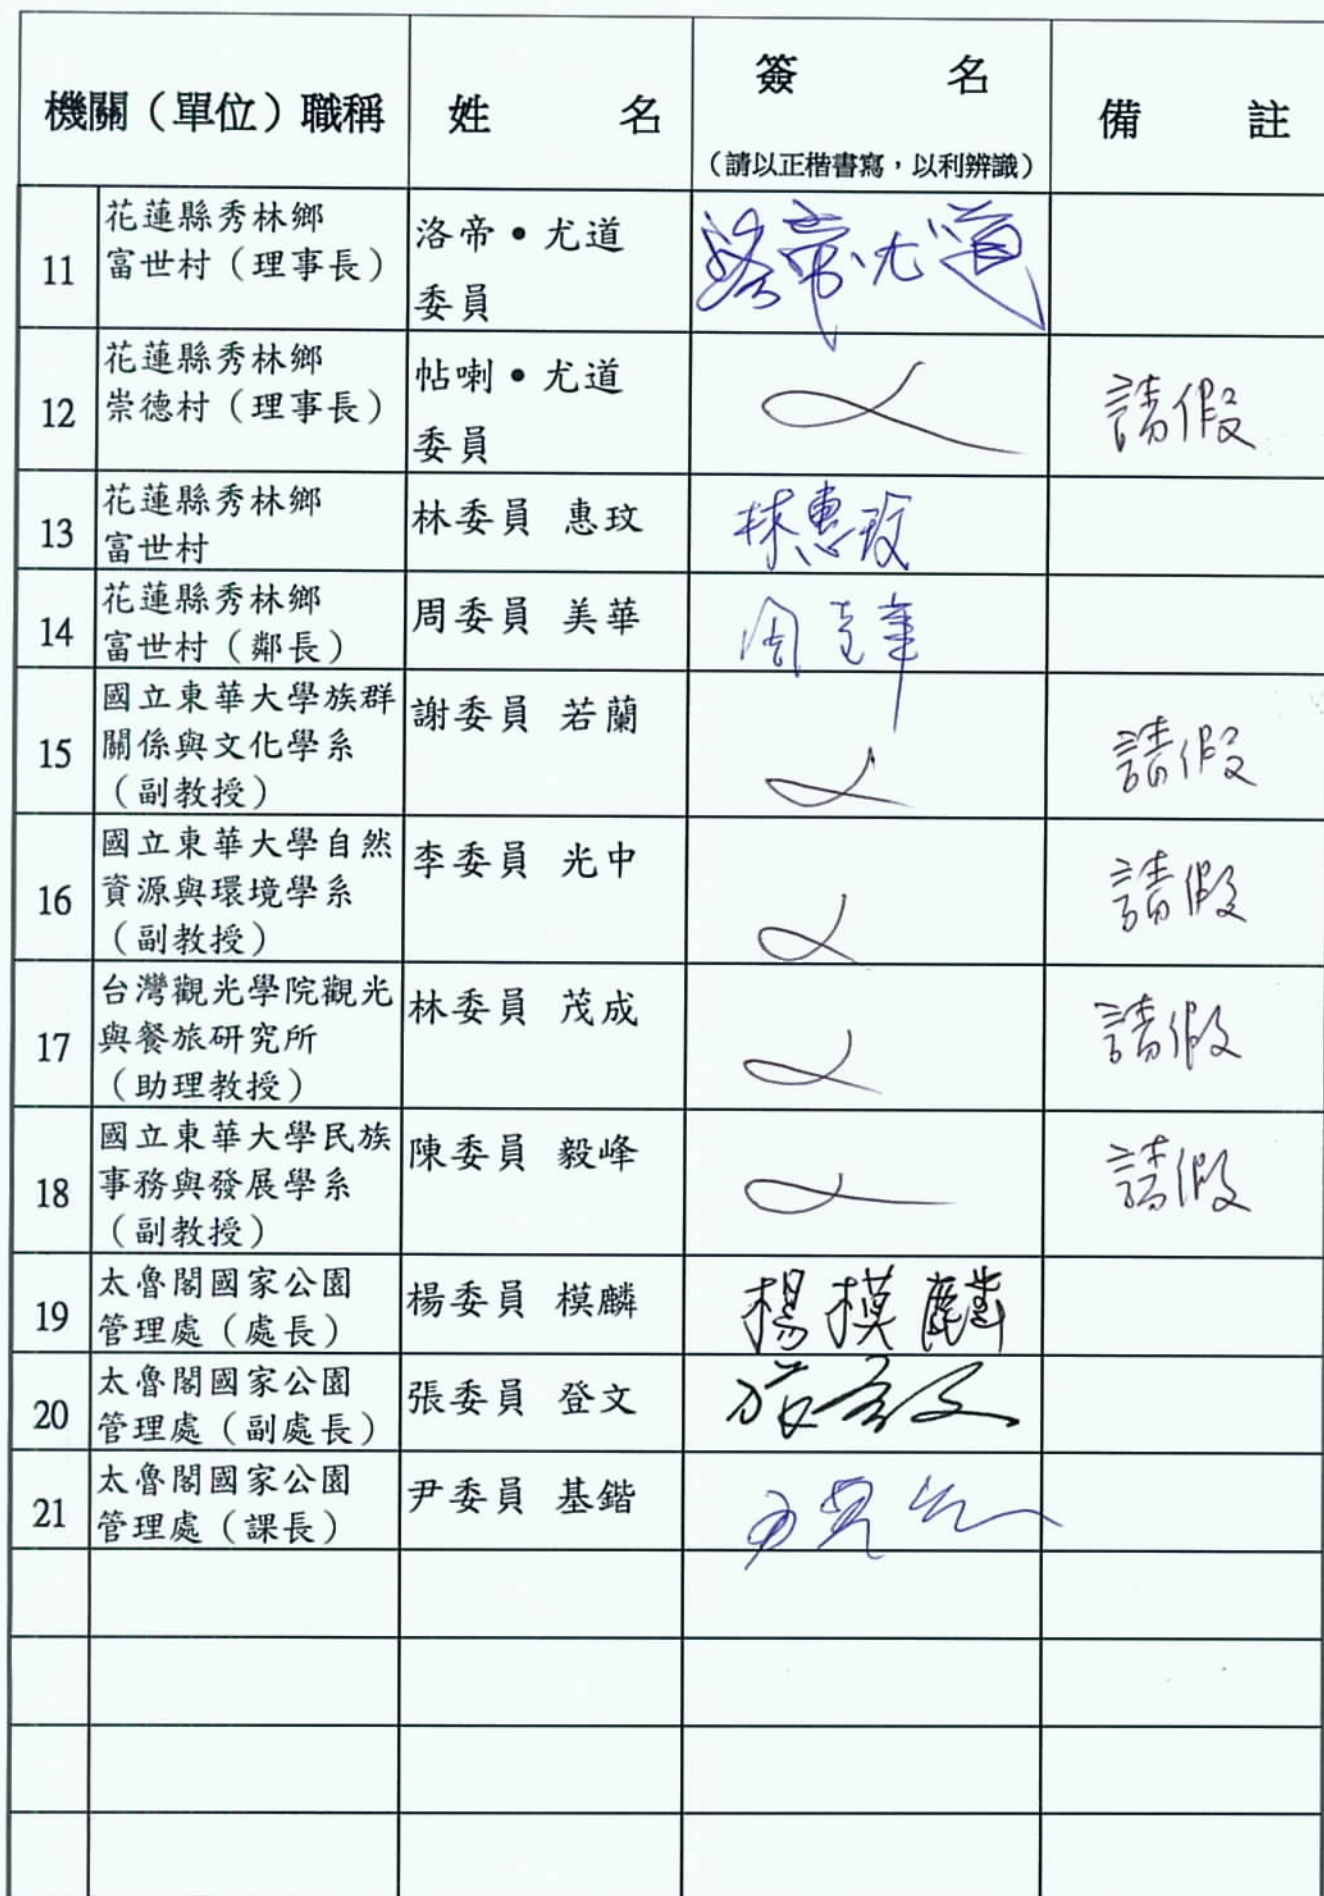 機關（單位）職稱 姓名 簽名 備註
（請以正楷書寫，以利辨識）
11 花蓮縣秀林鄉
富世村（理事長）
洛帝•尤道
委員
洛帝尤道
12 花蓮縣秀林鄉
崇德村（理事長）
帖喇•尤道
委員
請假
13 花蓮縣秀林鄉
富世村
林委員 惠玟
林惠玟
14 花蓮縣秀林鄉
富世村（鄰長）
周委員 美華
周美華
15 國立東華大學族群
關係與文化學系
（副教授）
謝委員 若蘭
請假
16 國立東華大學自然
資源與環境學系
（副教授）
李委員 光中
請假
17 台灣觀光學院觀光
與餐旅研究所
（助理教授）
林委員 茂成
請假
18 國立東華大學民族
事務與發展學系
（副教授）
陳委員 毅峰
請假
19 太魯閣國家公園
管理處（處長）
楊委員 模麟
楊模麟
20 太魯閣國家公園
管理處（副處長）
張委員 登文
21 太魯閣國家公園
管理處（課長）
尹委員 基鍇